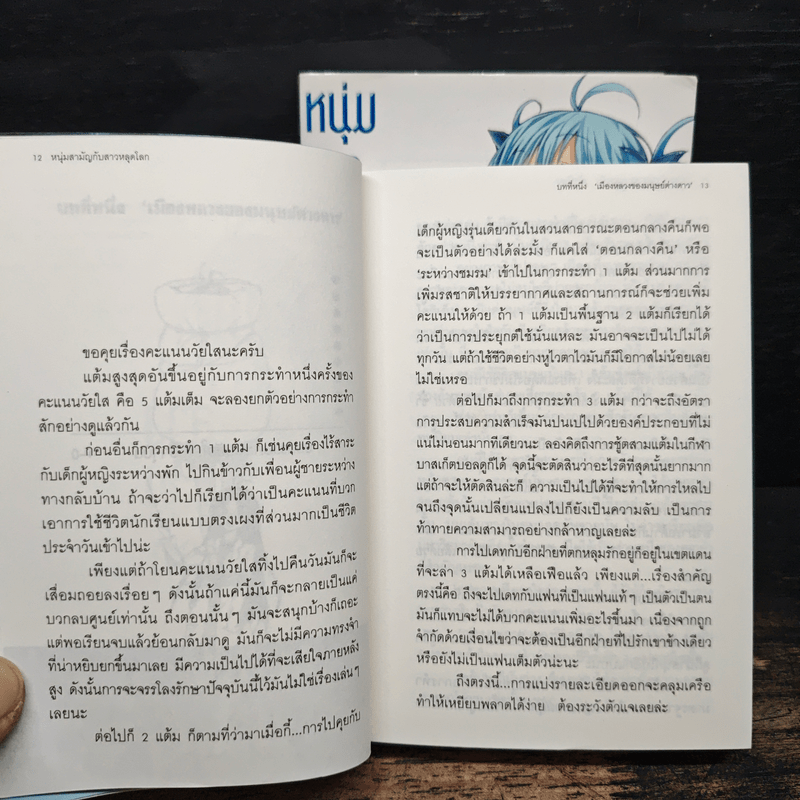 หนุ่ม
12 หนุ่มสามัญกับสาวหลุดโลก
ขอคุยเรื่องคะแนนวัยใสนะครับ
แต้มสูงสุดอันขึ้นอยู่กับการกระทำหนึ่งครั้งของ
คะแนนวัยใส คือ 5 แต้มเต็ม จะลองยกตัวอย่างการกระทำ
สักอย่างดูแล้วกัน
ก่อนอื่นก็การกระทำ 1 แต้ม ก็เช่นคุยเรื่องไร้สาระ
กับเด็กผู้หญิงระหว่างพัก ไปกินข้าวกับเพื่อนผู้ชายระหว่าง
ทางกลับบ้าน ถ้าจะว่าไปก็เรียกได้ว่าเป็นคะแนนที่บวก
เอาการใช้ชีวิตนักเรียนแบบตรงเผงที่ส่วนมากเป็นชีวิต
ประจำวันเข้าไปน่ะ
เพียงแต่ถ้าโยนคะแนนวัยใสทิ้งไปคืนวันมันก็จะ
เสื่อมถอยลงเรื่อยๆ ดังนั้นถ้าแค่นี้มันก็จะกลายเป็นแค่
บวกลบศูนย์เท่านั้น ถึงตอนนั้นๆ มันจะสนุกบ้างก็เถอะ
แต่พอเรียนจบแล้วย้อนกลับมาดู มันก็จะไม่มีความทรงจำ
ที่น่าหยิบยกขึ้นมาเลย มีความเป็นไปได้ที่จะเสียใจภายหลัง
สูง ดังนั้นการจะจรรโลงรักษาปัจจุบันนี้ไว้มันไม่ใช่เรื่องเล่นๆ
เลยนะ
ต่อไปก็ 2 แต้ม ก็ตามที่ว่ามาเมื่อกี้...การไปคุยกับ
บทที่หนึ่ง 'เมืองหลวงของมนุษย์ต่างดาว' 13
เด็กผู้หญิงรุ่นเดียวกันในสวนสาธารณะตอนกลางคืนก็พอ
จะเป็นตัวอย่างได้ล่ะมั้ง ก็แค่ใส่ 'ตอนกลางคืน' หรือ
'ระหว่างชมรม' เข้าไปในการกระทำ 1 แต้ม ส่วนมากการ
เพิ่มรสชาติให้บรรยากาศและสถานการณ์ก็จะช่วยเพิ่ม
คะแนนให้ด้วย ถ้า 1 แต้มเป็นพื้นฐาน 2 แต้มก็เรียกได้
ว่าเป็นการประยุกต์ใช้นั่นแหละ มันอาจจะเป็นไปไม่ได้
ทุกวัน แต่ถ้าใช้ชีวิตอย่างหูไวตาไวมันก็มีโอกาสไม่น้อยเลย
ไม่ใช่เหรอ
ต่อไปก็มาถึงการกระทำ 3 แต้ม กว่าจะถึงอัตรา
การประสบความสำเร็จมันปนเปไปด้วยองค์ประกอบที่ไม่
แน่ไม่นอนมากทีเดียวนะ ลองคิดถึงการชู้ตสามแต้มในกีฬา
บาสเก็ตบอลดูก็ได้ จุดนี้จะตัดสินว่าอะไรดีที่สุดนั้นยากมาก
แต่ถ้าจะให้ตัดสินล่ะก็ ความเป็นไปได้ที่จะทำให้การไหลไป
จนถึงจุดนั้นเปลี่ยนแปลงไปก็ยังเป็นความลับ เป็นการ
ท้าทายความสามารถอย่างกล้าหาญเลยล่ะ
การไปเดทกับอีกฝ่ายที่ตกหลุมรักอยู่ก็อยู่ในเขตแดน
ที่จะล่า 3 แต้มได้เหลือเฟือแล้ว เพียงแต่...เรื่องสำคัญ
ตรงนี้คือ ถึงจะไปเดทกับแฟนที่เป็นแฟนแท้ๆ เป็นตัวเป็นตน
มันก็แทบจะไม่ได้คะแนนเพิ่มอะไรขึ้นมา เนื่องจากถูก
จำกัดด้วยเงื่อนไขว่าจะต้องเป็นอีกฝ่ายที่ไปรักเขาข้างเดียว
หรือยังไม่เป็นแฟนเต็มตัวน่ะนะ
ถึงตรงนี้...การแบ่งรายละเอียดออกจะคลุมเครือ
ทำให้เหยียบพลาดได้ง่าย ต้องระวังตัวแจเลยล่ะ